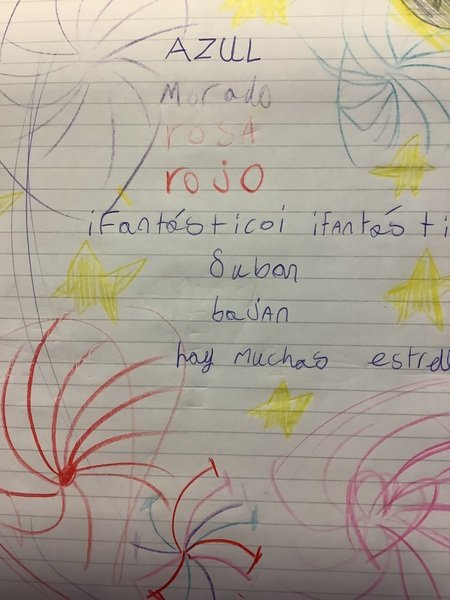 AZUL
Morado
rosa
rojo
¡Fantásticoi ¡fantásti
Suban
bajan
hay muchas estrell